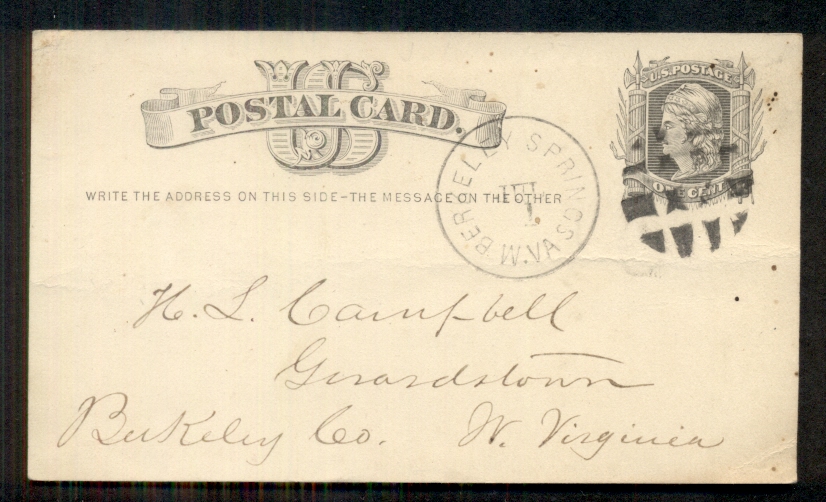 US
POSTAL CARD.
U.S. POSTAGE
ONE CENT
WRITE THE ADDRESS ON THIS SIDE–THE MESSAGE ON THE OTHER
BERKELEY SPRINGS
1
W.VA
H. L. Campbell
Gerardstown
Berkeley Co. W. Virginia